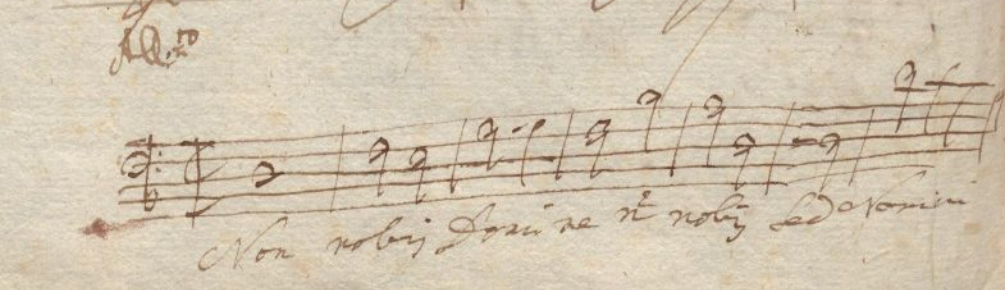 All.ro
Non nobis Domine n. nobis sed Nomini